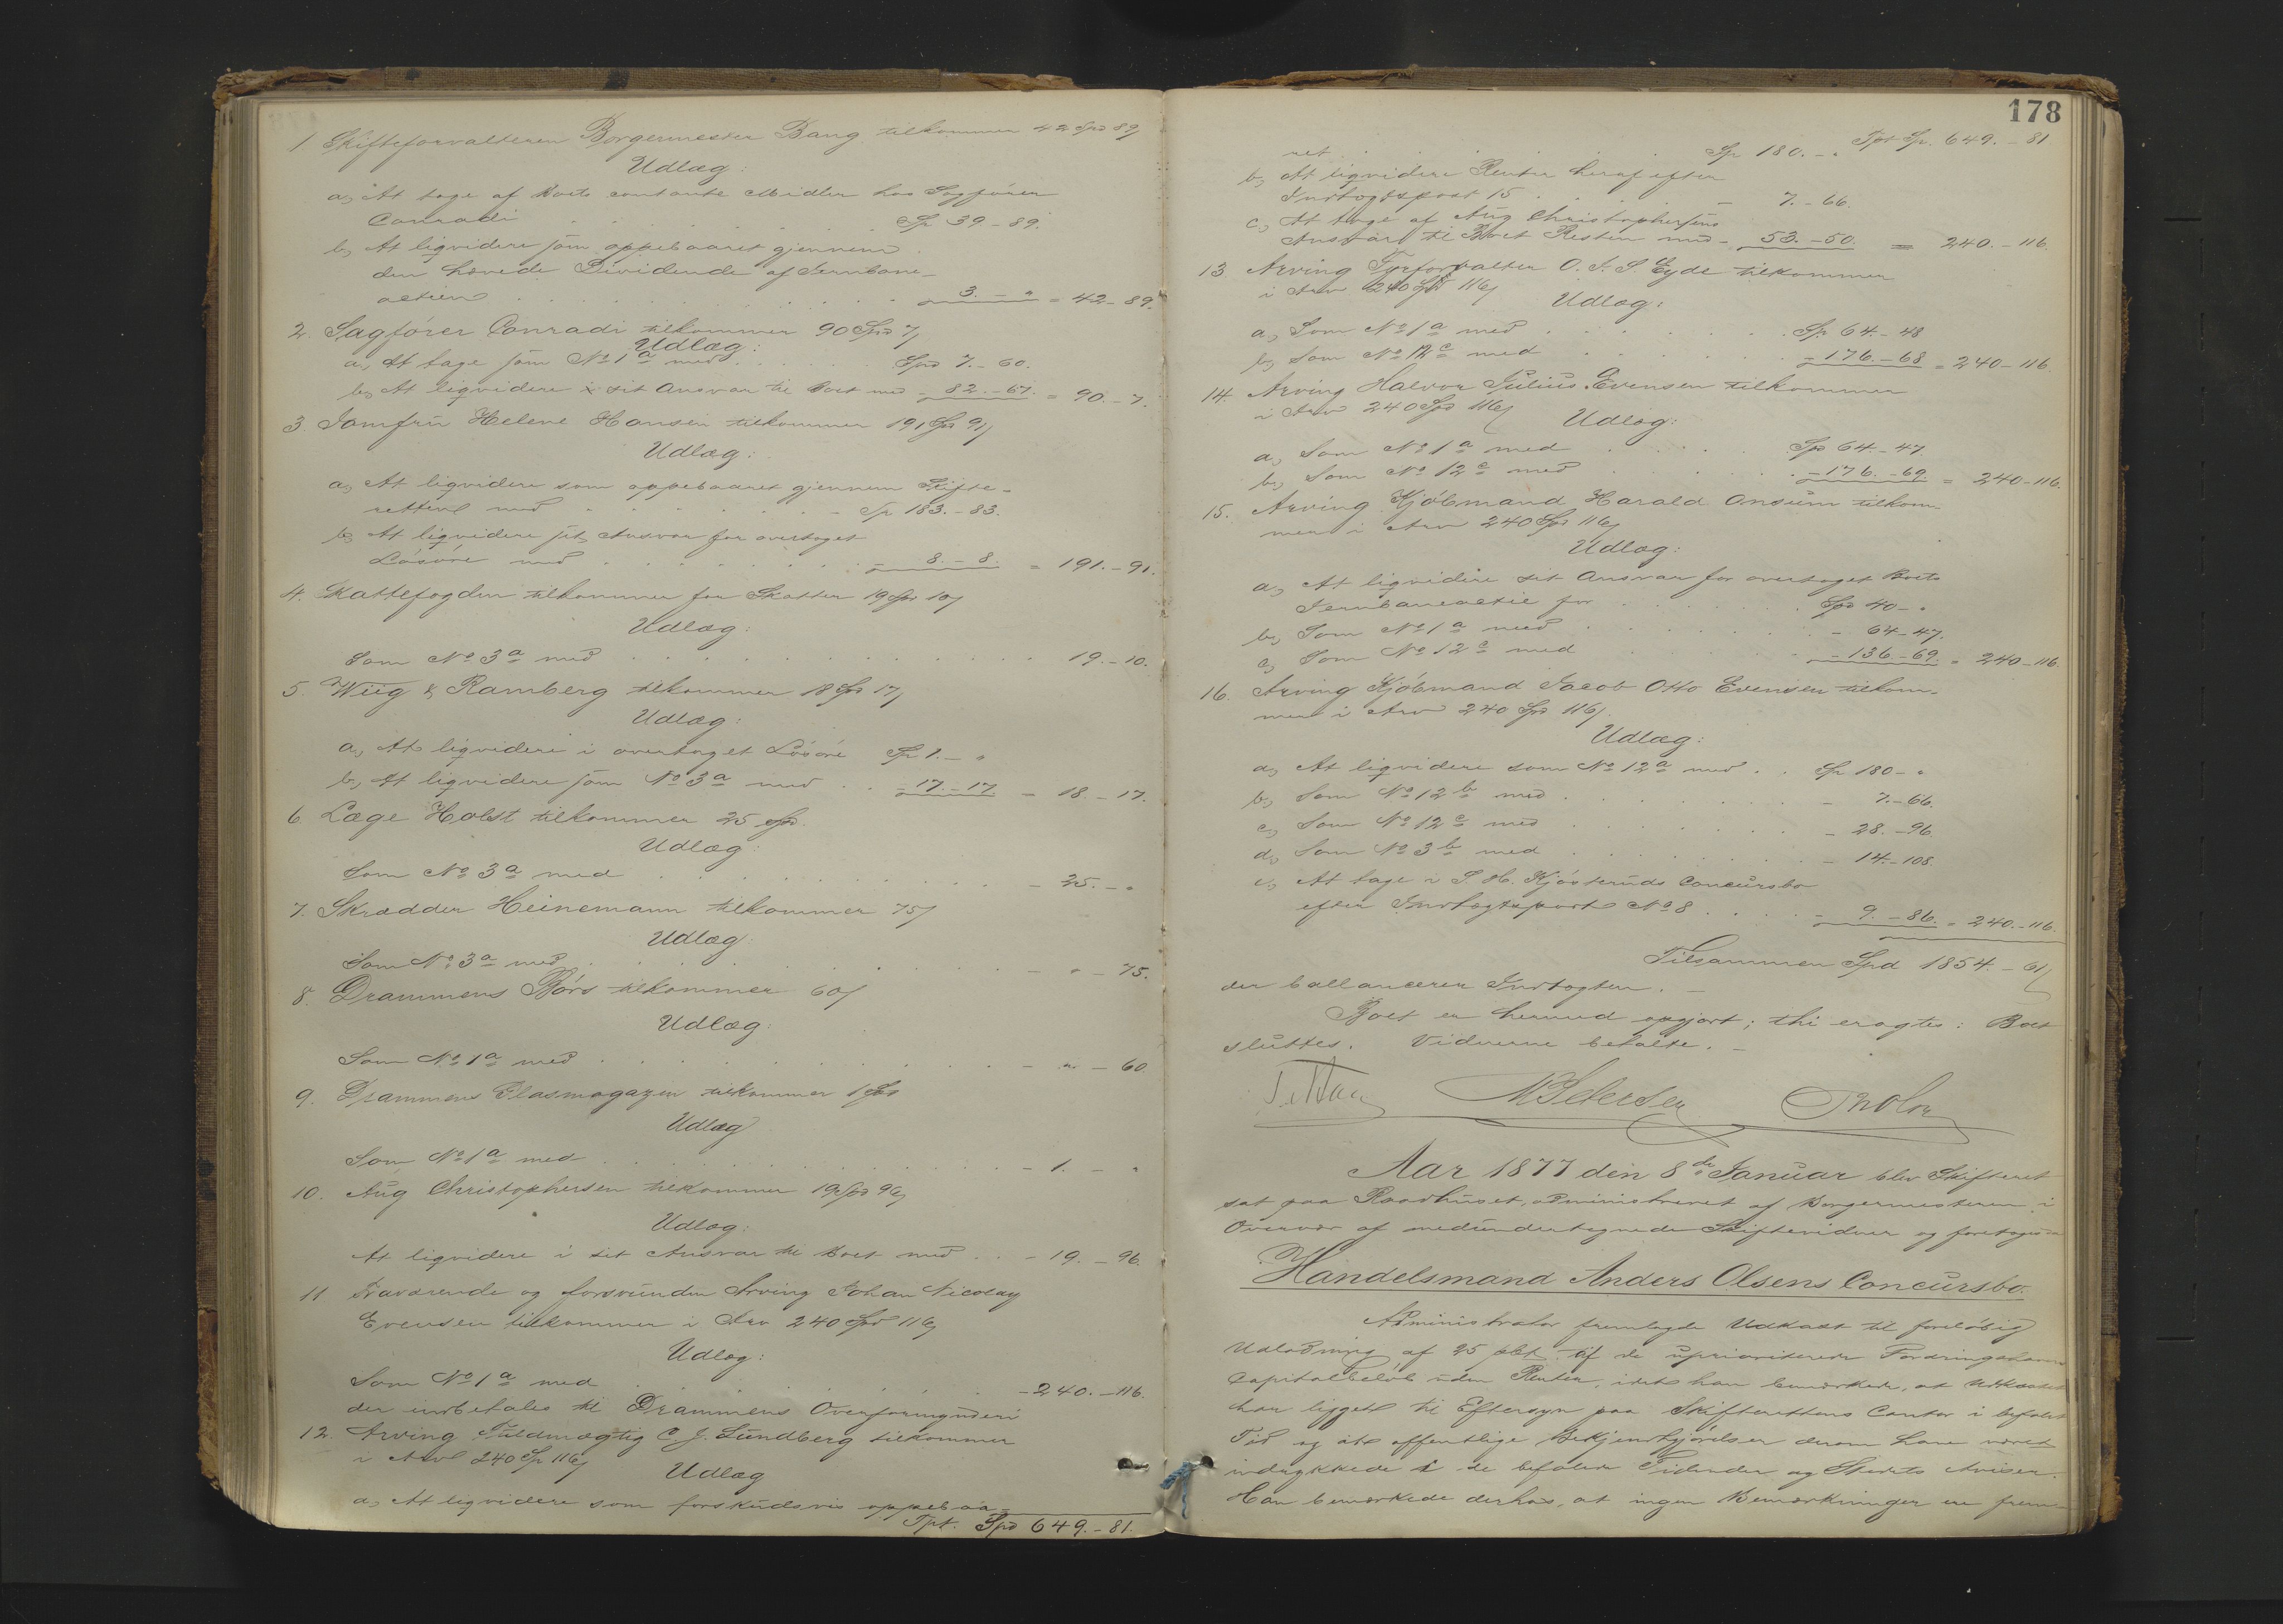 1 Skifteforvalteren Borgermester Bang tilkommer 42 Spd 89/
Udlæg:
a, At tage af Boets contante Midler hos Sagfører
Conradi . . . . . . . Sp 39-89.
b, At liqvidere som oppebaaret gjennem
den hævede Dividende af Jernbane-
actien . . . . . . . 3. - " = 42-89.
2. Sagfører Conradi tilkommer 90 Spd 7/
Udlæg:
a, At tage som No 1a med . . . . Spd 7.-60.
b, At liqvidere i sit Ansvar til Boet med - 82.-67. = 90.-7.
3. Jomfru Helene Hansen tilkommer 191 Spd 91/
Udlæg:
a, At liqvidere som oppebaaret gjennem Skifte-
retten med . . . . . . . - Sp 183.-83.
b, At liqvidere sit Ansvar for overtaget
Løsøre med . . . . . . . - 8.-8. = 191.-91.
4. Skattefogden tilkommer for Skatter 19 Spd 10/
Udlæg:
Som No. 3a med . . . . . . . 19.-10.
5. Wiig & Ramberg tilkommer 18 Spd 17/
Udlæg:
a, At liqvidere i overtaget Løsøre Sp 1.- "
b, At liqvidere som No 3a med . . - 17.-17 = 18.-17.
6. Læge Holst tilkommer 25 Spd.
Udlæg:
Som No 3a med . . . . . . . - 25.- "
7. Skrædder Heinemann tilkommer 75/
Udlæg:
Som No. 3a med . . . . . . . - " - 75.
8. Drammens Børs tilkommer 60/
Udlæg:
Som No 1a med . . . . . . . - " - 60.
9. Drammens Glasmagazin tilkommer 1 Spd
Udlæg
Som No 1a med . . . . . . . - 1. - "
10. Aug Christophersen tilkommer 19 Spd 96/
Udlæg:
At liqvidere i sit Ansvar til Boet med . . - 19.-96.
11 Fraværende og forsvunden Arving Johan Nicolay
Evensen tilkommer i Arv 240 Spd 116/
Udlæg:
Som No 1a med . . . . . . . - 240.-116.
der indbetales til Drammens Overformynderi
12. Arving Fuldmægtig C. J. Lundberg tilkommer
i Arv 240 Sp 116/
Udlæg
a, At liqvidere som forskudsvis oppebaa-
Tpt. Spd 649.-81.
178
Tpt Sp. 649.-81
ret . . . . . Sp 180.- "
b, At liqvidere Renter heraf efter
Indtægtspost 15 . . . . . - 7.-66.
c, At tage af Aug Christophersens
Ansvar til Boet Resten med - 53.-50. = 240.-116.
13 Arving O. J. S. Eyde tilkommer
i Arv 240 Spd 116/
Udlæg:
a, Som No 1a med . . . . . . . Sp. 64-48
b, Som No 12c med . . . . . . . - 176.-68 = 240-116.
14. Arving Halvor Julius Evensen tilkommer
i Arv 240 Spd 116/
Udlæg:
a, Som No 1a med . . . . . Sp 64-47.
b, Som No 12c med . . . . . - 176.-69 = 240-116.
15. Arving Kjøbmand Harald Onsum tilkom-
mer i Arv 240 Spd 116/
Udlæg:
a, At liqvidere sit Ansvar for overtaget Boets
Jernbaneactie for . . . . . Spd 40- "
b, Som No 1a med . . . . . - 64-47.
c, Som No 12c med . . . . . - 136-69. = 240-116.
16. Arving Kjøbmand Jacob Otto Evensen tilkom-
mer i Arv 240 Spd 116/.
Udlæg:
a, At liqvidere som No 12a med . . Sp 180- "
b, Som No 12b med . . . . . - 7.-66.
c, Som No 12c med . . . . . - 28.-96.
d, Som No 3b med . . . . . - 14.-108.
e, At tage i S. H. Kjøsteruds Concursbo
efter Indtægtspost No 8 . . . . - 9.-86. = 240.-116.
Tilsammen Spd 1854-61/
der ballancerer Indtægten. -
Boet er hermed opgjort; thi eragtes: Boet
sluttes. Vidnerne betalte. -
Aar 1877 den 8de Januar blev Skifteret
sat paa Raadhuset, administreret af Borgermesteren i
Overvær af medundertegnede Skiftevidner og foretoges
Handelsmand Anders Olsens Concursbo.
Administrator fremlagde Udkast til foreløbig
Udlodning af 25 pCt. af de uprioriterede Fordringshavere
Capitalbeløb uden Renter, idet han bemærkede, at Udkastet
har ligget til Eftersyn paa Skifterettens Contor i befalet
Tid og at offentlige Bekjendtgjørelser derom have været
indrykkede i de befalede Tidender og Stedets Aviser.
Han bemærkede derhos, at ingen Bemærkninger ere frem-